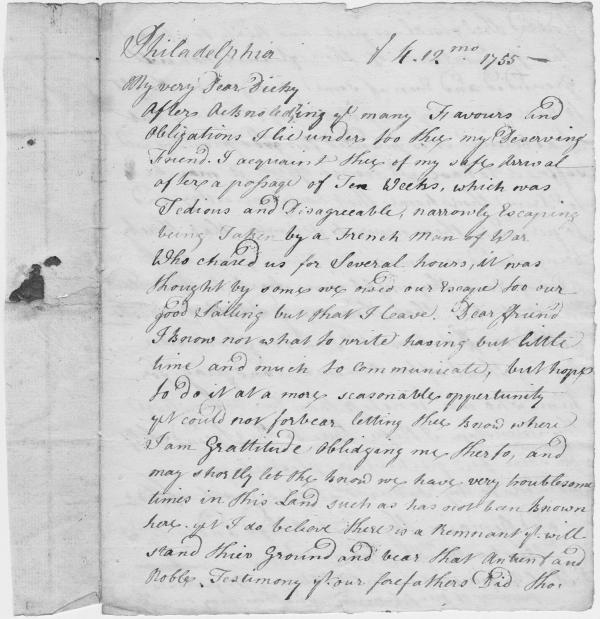 Philadelphia ye 4. 12mo 1755 —
My very Dear Dicky
After Acknoledging ye many Favours and
Obligations I lie under too thee my Deserving
Friend. I acquaint thee of my safe Arrival
after a passage of Ten Weeks, which was
Tedious and Disagreeable, narrowly Escaping
being Taken by a French Man of War
Who chased us for Several hours, it was
thought by some we owed our Escape too our
good Sailing but that I leave. Dear friend
I know not what to write having but little
time and much to communicate, but hope
to do it at a more seasonable opportunity
yet could not forbear letting thee know where
I am Grattitude oblidging me therto, and
may shortly let the know we have very troublesome
times in this Land such as has not ban known
here. yet I do believe there is a Remnant yt. will
stand thier Ground and bear that Antient and
Noble Testimony yt. our forefathers Did tho: